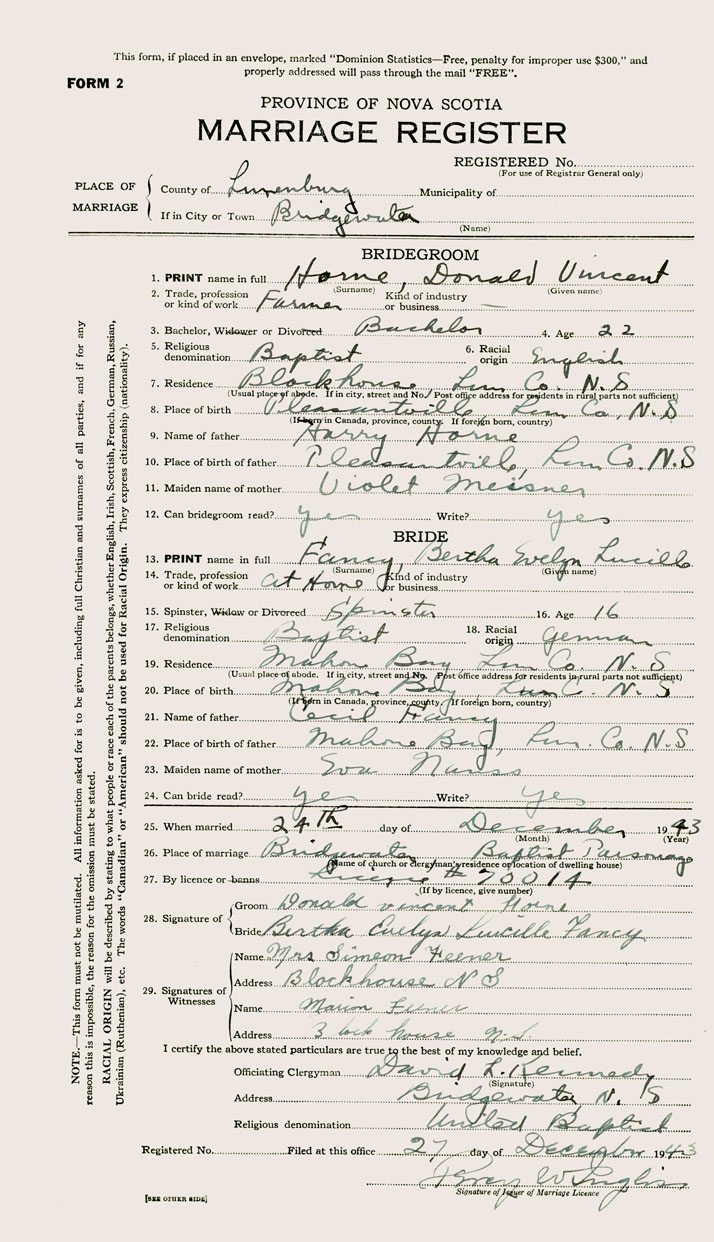 This form, if placed in an envelope, marked “Dominion Statistics—Free, penalty for improper use $300,” and
properly addressed will pass through the mail “FREE”.
FORM 2
PROVINCE OF NOVA SCOTIA
MARRIAGE REGISTER
REGISTERED No.
(For use of Registrar General only)
PLACE OF MARRIAGE
County of Lunenburg Municipality of
If in City or Town Bridgewater
(Name)
BRIDEGROOM
1. PRINT name in full Horne, Donald Vincent
(Surname) (Given name)
2. Trade, profession or kind of work Farmer Kind of industry or business —
3. Bachelor, Widower or Divorced Bachelor 4. Age 22
5. Religious denomination Baptist 6. Racial origin English
7. Residence Blockhouse Lun Co. N.S
(Usual place of abode. If in city, street and No. Post office address for residents in rural parts not sufficient)
8. Place of birth Pleasantville, Lun Co, N.S
(If born in Canada, province, county. If foreign born, country)
9. Name of father Harry Horne
10. Place of birth of father Pleasantville, Lun Co. N.S
11. Maiden name of mother Violet Meisner
12. Can bridegroom read? yes Write? yes
BRIDE
13. PRINT name in full Fancy, Bertha Evelyn Lucille
(Surname) (Given name)
14. Trade, profession or kind of work At Home Kind of industry or business
15. Spinster, Widow or Divorced Spinster 16. Age 16
17. Religious denomination Baptist 18. Racial origin German
19. Residence Mahone Bay Lun Co. N. S
(Usual place of abode. If in city, street and No. Post office address for residents in rural parts not sufficient)
20. Place of birth Mahone Bay Lun C. N. S
(If born in Canada, province, county. If foreign born, country)
21. Name of father Cecil Fancy
22. Place of birth of father Mahone Bay, Lun. Co. N.S
23. Maiden name of mother Eva Nauss
24. Can bride read? yes Write? yes
25. When married 24th day of December 1943
(Month) (Year)
26. Place of marriage Bridgewater Baptist Parsonage
(Name of church or clergyman's residence or location of dwelling house)
27. By licence or banns License # 70014
(If by licence, give number)
28. Signature of
Groom Donald vincent Horne
Bride Bertha Evelyn Lucille Fancy
29. Signatures of Witnesses
Name Mrs Simeon Feener
Address Blockhouse N S
Name Marion Feener
Address Block house N.S.
I certify the above stated particulars are true to the best of my knowledge and belief.
Officiating Clergyman David L. Kennedy
(Signature)
Address Bridgewater, N. S
Religious denomination United Baptist
Registered No. Filed at this office 27 day of December 1943
Signature of Issuer of Marriage Licence
[SEE OTHER SIDE]
NOTE.—This form must not be mutilated. All information asked for is to be given, including full Christian and surnames of all parties, and if for any
reason this is impossible, the reason for the omission must be stated.
RACIAL ORIGIN will be described by stating to what people or race each of the parents belongs, whether English, Irish, Scottish, French, German, Russian,
Ukrainian (Ruthenian), etc. The words “Canadian” or “American” should not be used for Racial Origin. They express citizenship (nationality).